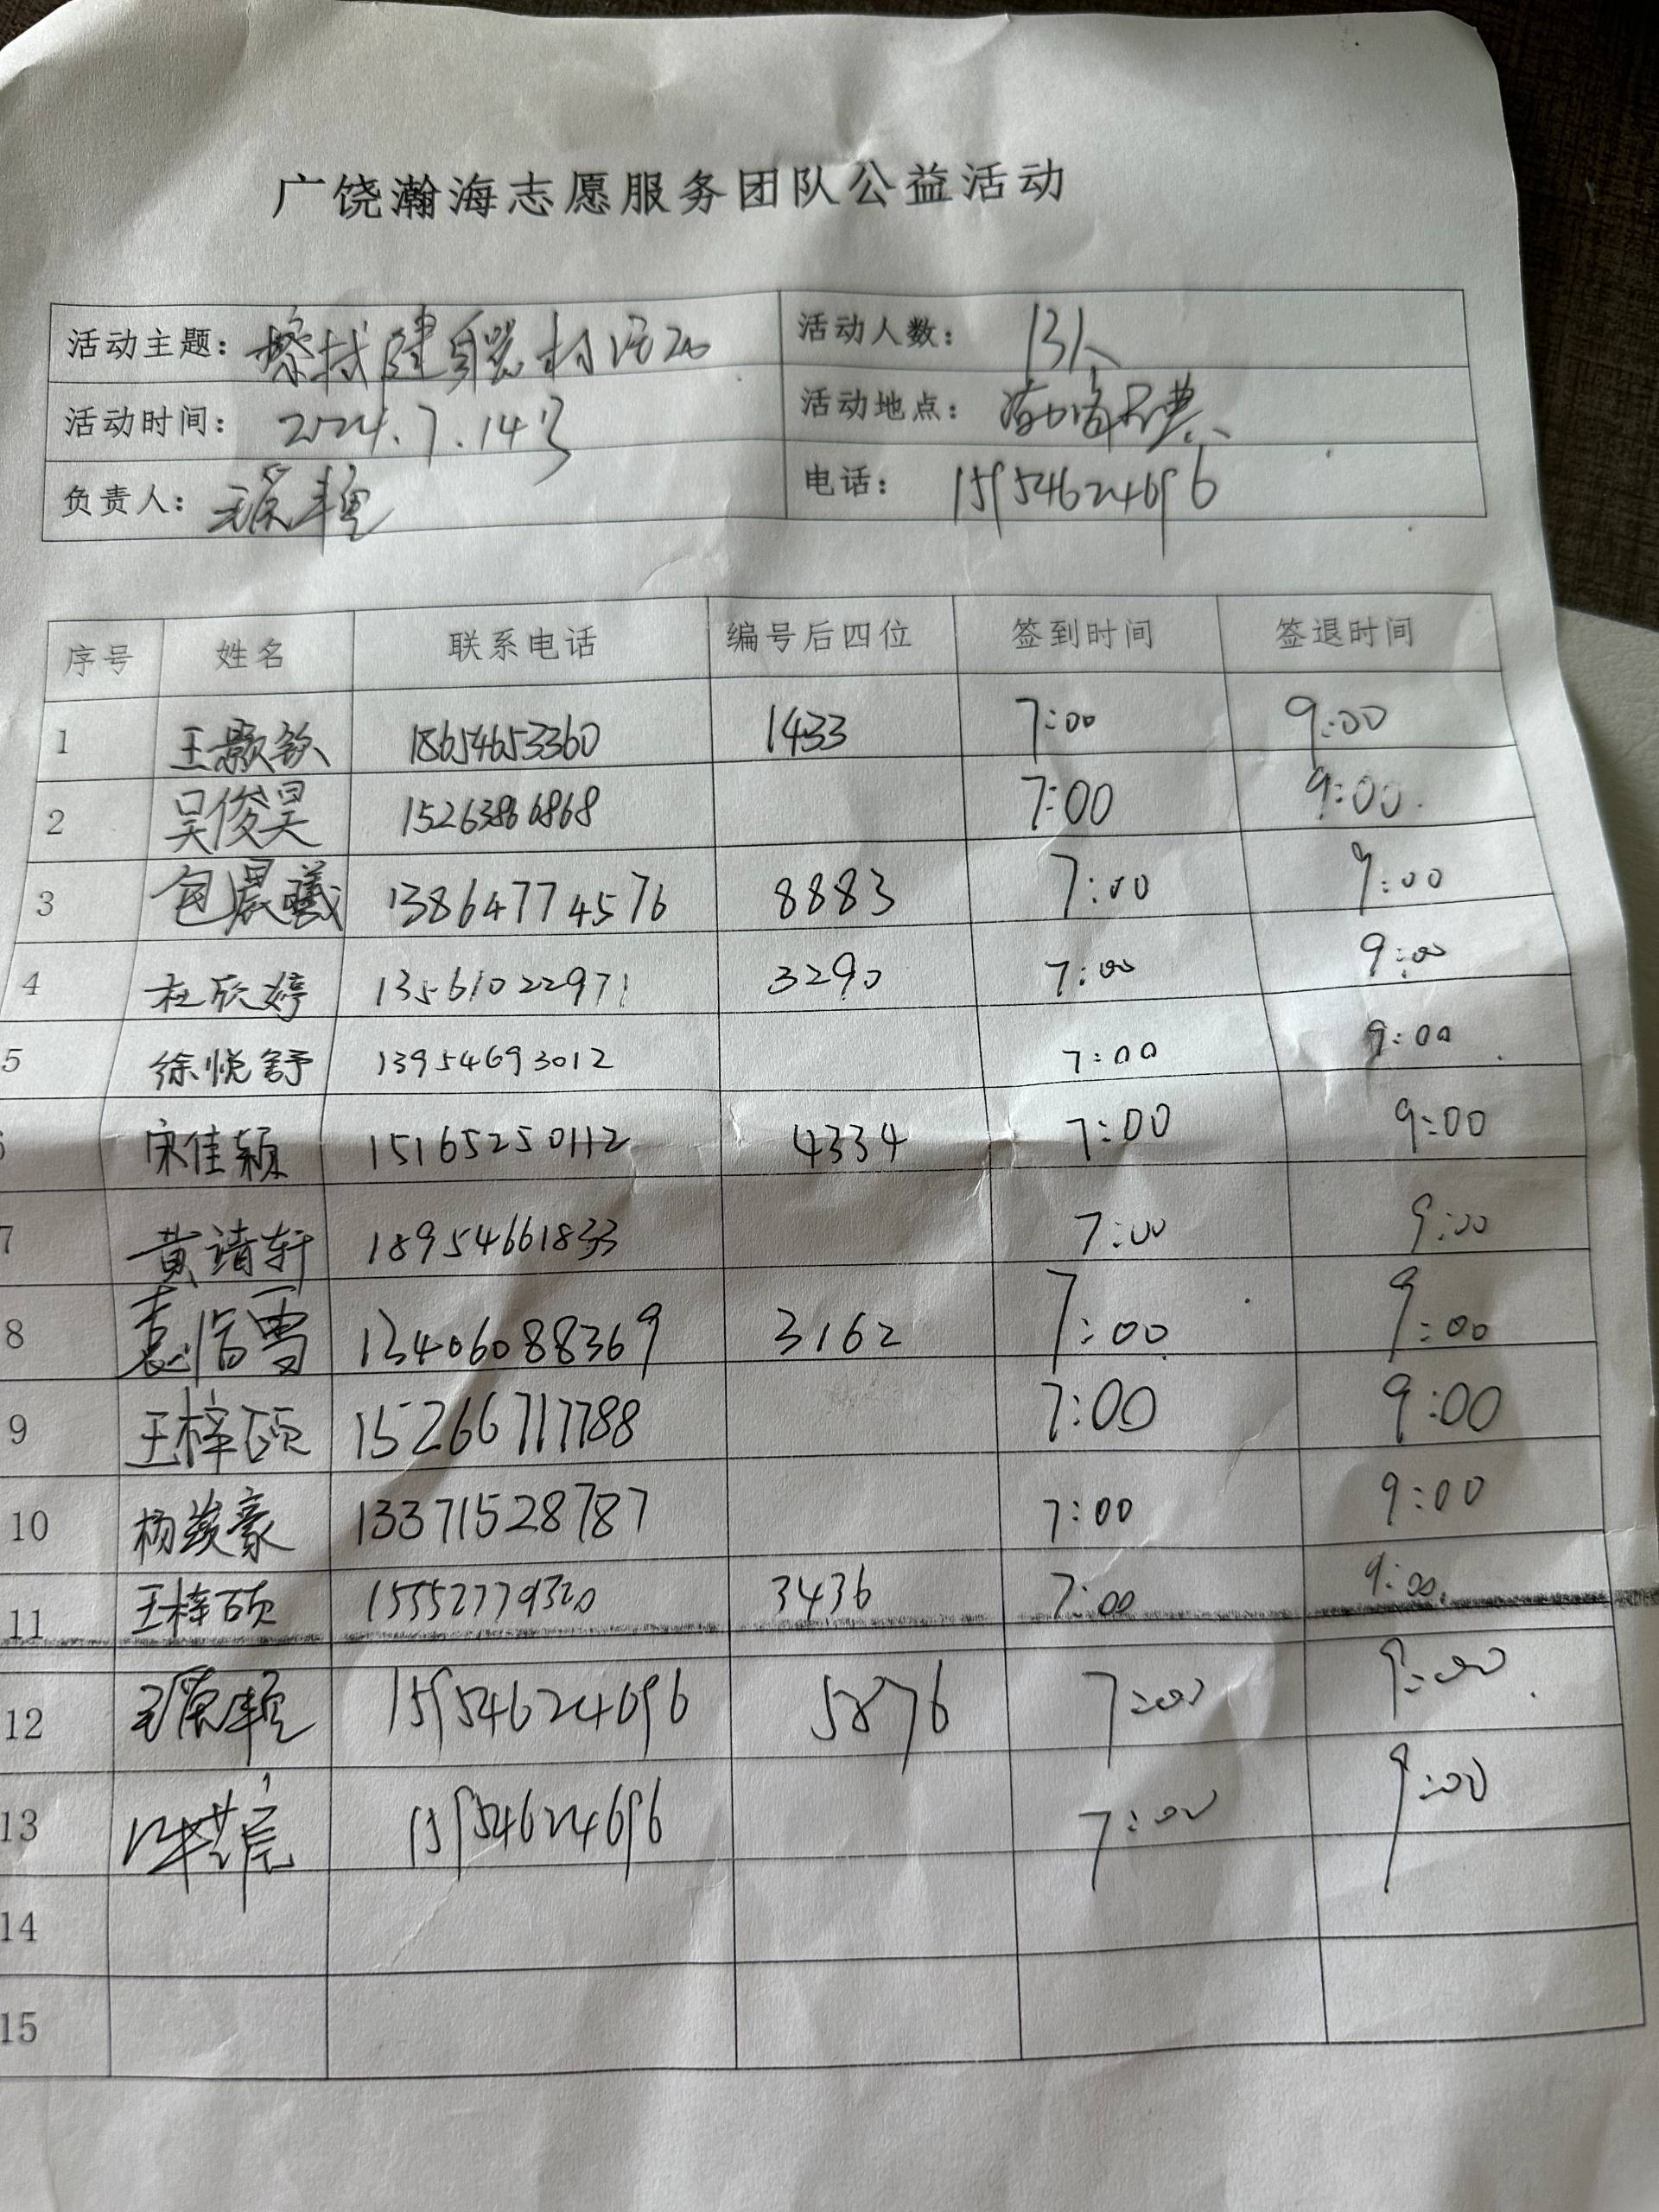 广饶瀚海志愿服务团队公益活动
活动主题：擦拭健身器材活动 活动人数：13人
活动时间：2024.7.14号 活动地点：
负责人： 电话：15954624696
序号 姓名 联系电话 编号后四位 签到时间 签退时间
1 王颢钦 18654653360 1433 7:00 9:00
2 吴俊昊 15263866868 7:00 9:00
3 包晨曦 13864774576 8883 7:00 9:00
4 杜欣婷 13561022971 3290 7:00 9:00
5 徐悦舒 13954693012 7:00 9:00
6 宋佳颖 15165250112 4334 7:00 9:00
7 黄靖轩 18954661833 7:00 9:00
8 13406088369 3162 7:00 9:00
9 王梓硕 15266717788 7:00 9:00
10 杨焌豪 13371528787 7:00 9:00
11 王梓硕 15552779320 3436 7:00 9:00
12 15954624696 5876 7:00 9:00
13 15954624696 7:00 9:00
14
15